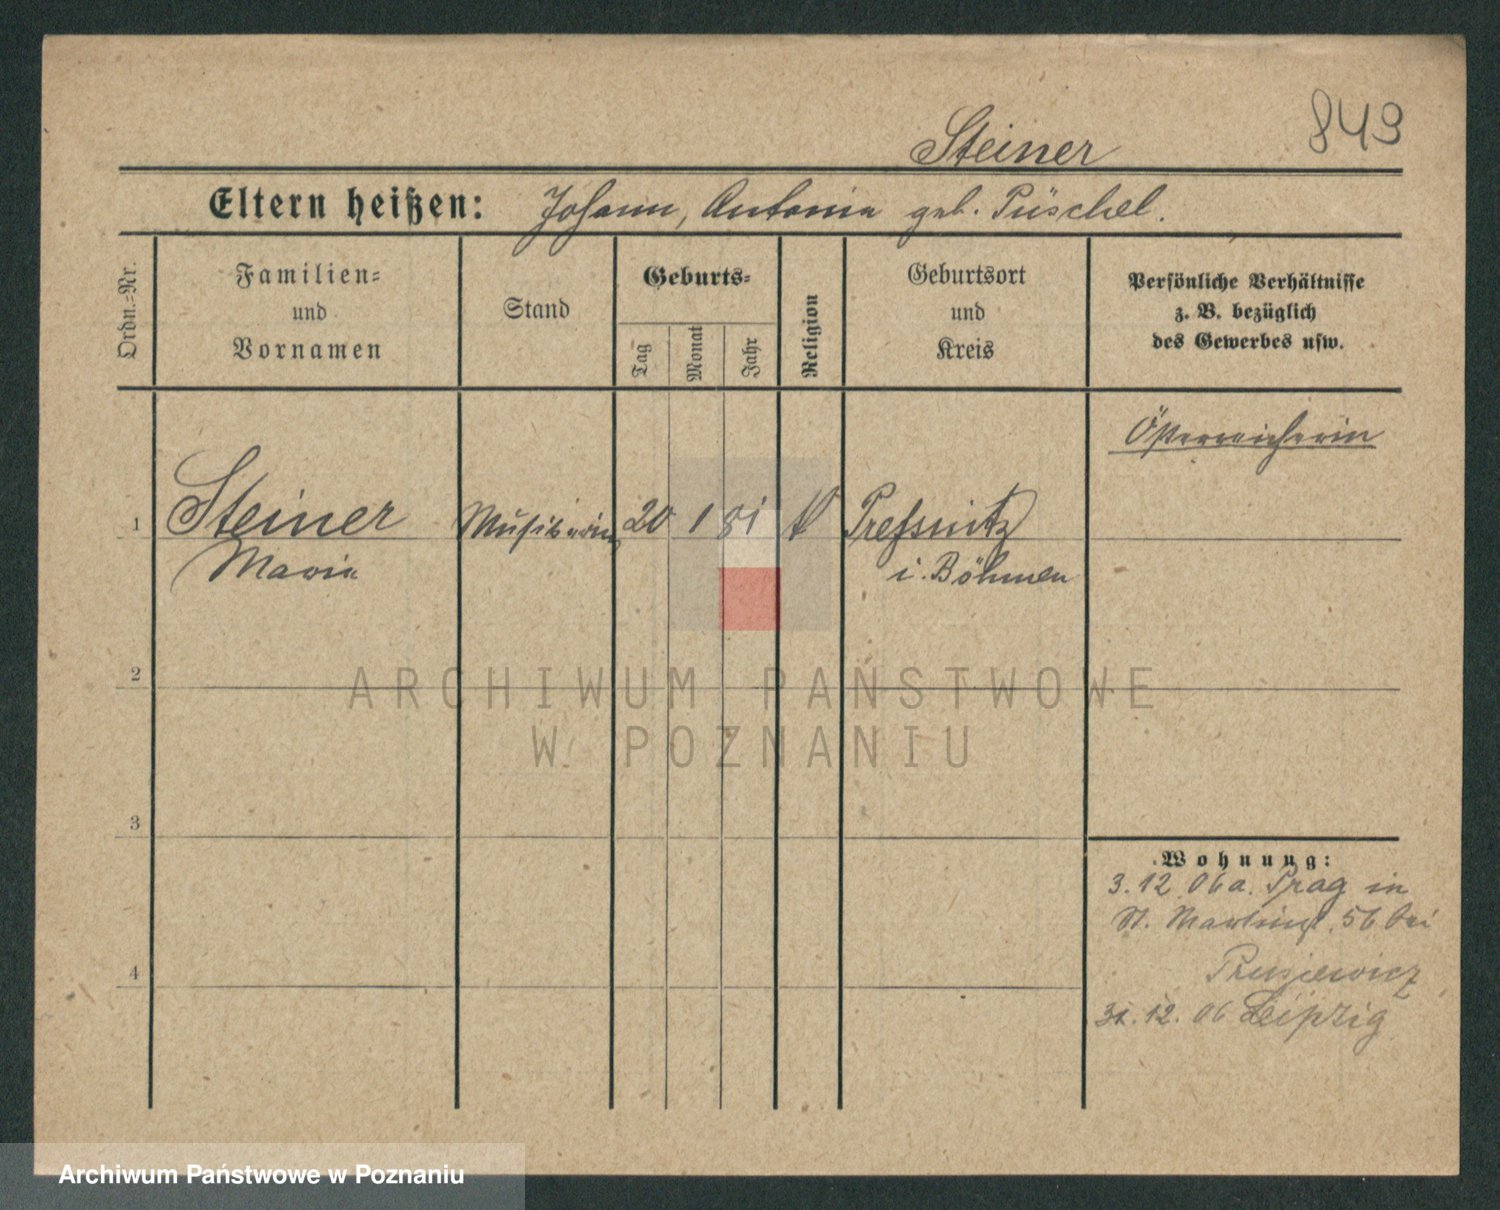 Steiner
849
Eltern heißen: Johann, Antonia geb. Püschel.
Ordn.=Nr.
Familien=
und
Vornamen
Stand
Geburts=
Tag
Monat
Jahr
Religion
Geburtsort
und
Kreis
Persönliche Verhältnisse
z. B. bezüglich
des Gewerbes usw.
Österreicherin
1 Steiner Musikerin 20 1 81 k Pressnitz
Maria i. Böhmen
2
ARCHIWUM PAŃSTWOWE
W POZNANIU
3
Wohnung:
3.12.06 a. Prag in
St. Martinst. 56 bei
4
31.12.06 Leipzig
Archiwum Państwowe w Poznaniu